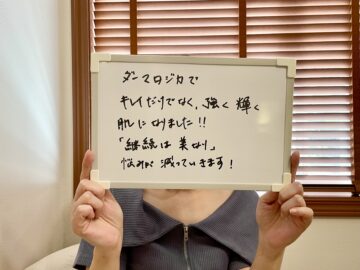 ダーマロジカで
キレイだけでなく、強く輝く
肌になりました!!
「継続は美なり」
悩みが減っていきます!